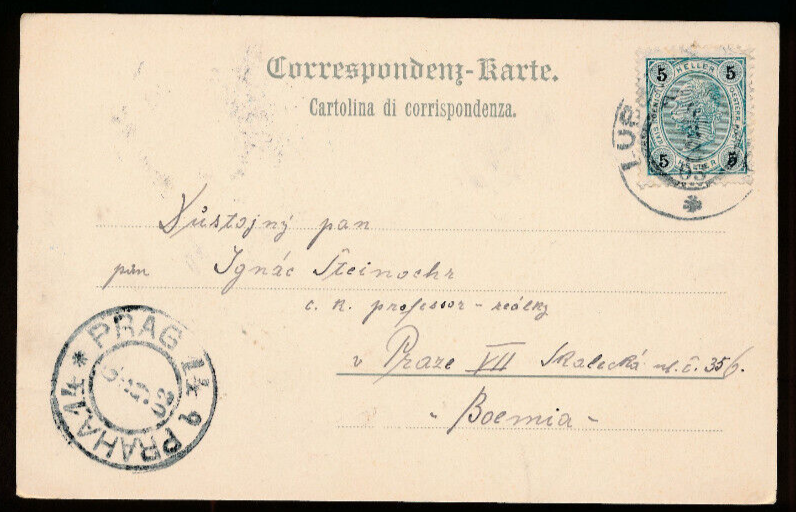 Correspondenz-Karte.
Cartolina di corrispondenza.
5 HELLER 5
5 5
LUS
03
Důstojný pan
pan Ignác Steinochr
c. k. professor - reálky
v Praze VII Skalecká ul. č. 356.
- Boemia -
* PRAG 14 *
03
PRAHA 14